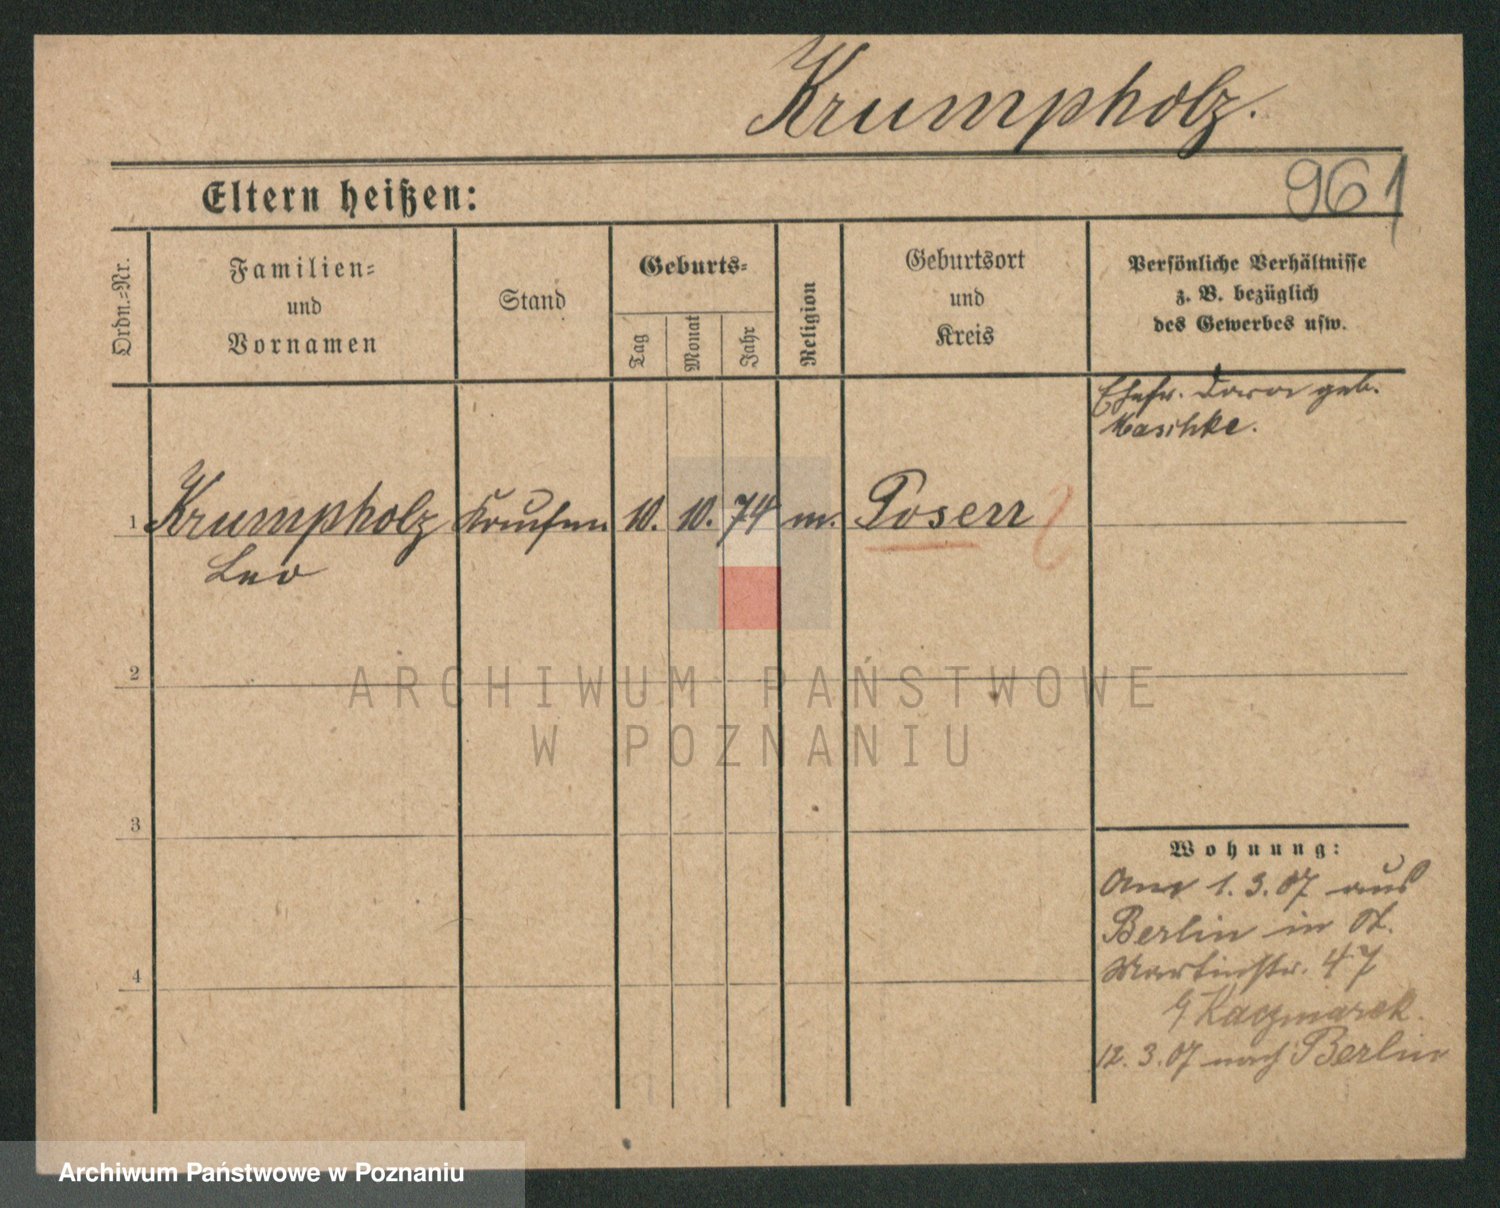 Krumpholz.
961
Eltern heißen:
Ordn.=Nr.
Familien=
und
Vornamen
Stand
Geburts=
Tag
Monat
Jahr
Religion
Geburtsort
und
Kreis
Persönliche Verhältnisse
z. B. bezüglich
des Gewerbes usw.
Ehefr. geb.
Maschke.
1 Krumpholz Kaufm. 10. 10. 74 m. Posen
Leo
2
ARCHIWUM PAŃSTWOWE
W POZNANIU
3
Wohnung:
Am 1. 3. 07 aus
Berlin in St.
Martinstr. 47
Kaczmarek.
12. 3. 07 nach Berlin
4
Archiwum Państwowe w Poznaniu